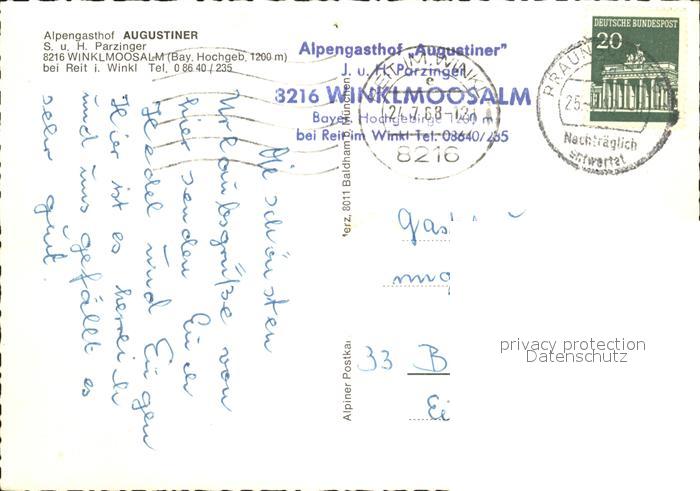 Alpengasthof AUGUSTINER
S. u. H. Parzinger
8216 WINKLMOOSALM (Bay. Hochgeb. 1200 m)
bei Reit i. Winkl Tel. 0 86 40 / 235
Alpengasthof „Augustiner"
J. u. H. Parzinger
8216 WINKLMOOSALM
Bayer. Hochgebirge 1160 m
bei Reit im Winkl Tel. 08640/235
REIT IM WINKL
c
27.7.68-12
8216
DEUTSCHE BUNDESPOST
20
25.
Nachträglich
entwertet
Die schönsten
Urlaubsgrüße von
hier senden Euch
Hedel und Eugen
Hier ist es herrlich
und uns gefällt es
sehr gut.
erz, 8011 Baldham b. München
Alpiner Postka
33 B
Ei
privacy protection
Datenschutz